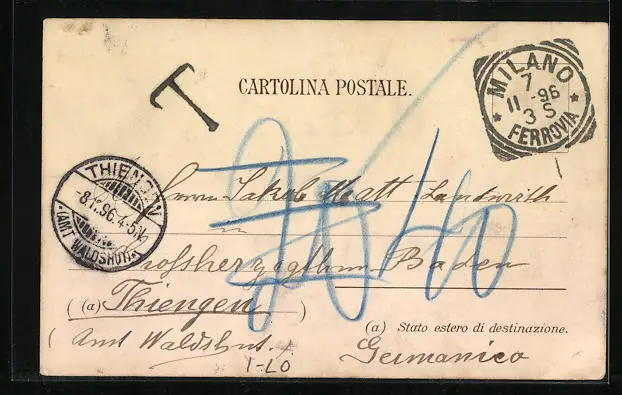 T
CARTOLINA POSTALE.
MILANO
7
11 -96
3 S
FERROVIA
THIENGEN
-8.11.96.4-5N.
(AMT WALDSHUT)
Herrn Jakob Matt Landwirth
in
Grossherzogthum Baden
(a) Thiengen )
( Amt Waldshut.
(a) Stato estero di destinazione.
Germanico
1-LO
40